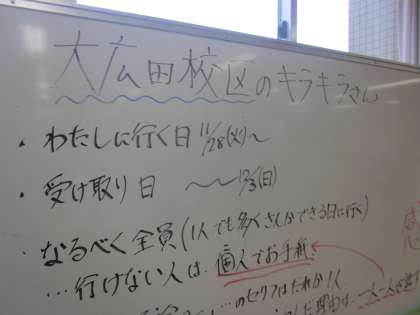 大広田校区のキラキラさん
・わたしに行く日 11/28(火)〜
・受け取り日 〜〜12/3(日)
・なるべく全員(1人でも多くさんができる日に行く)
…行けない人は、個人でお手紙
…のセリフはだれか1人
した理由は、一人一人を